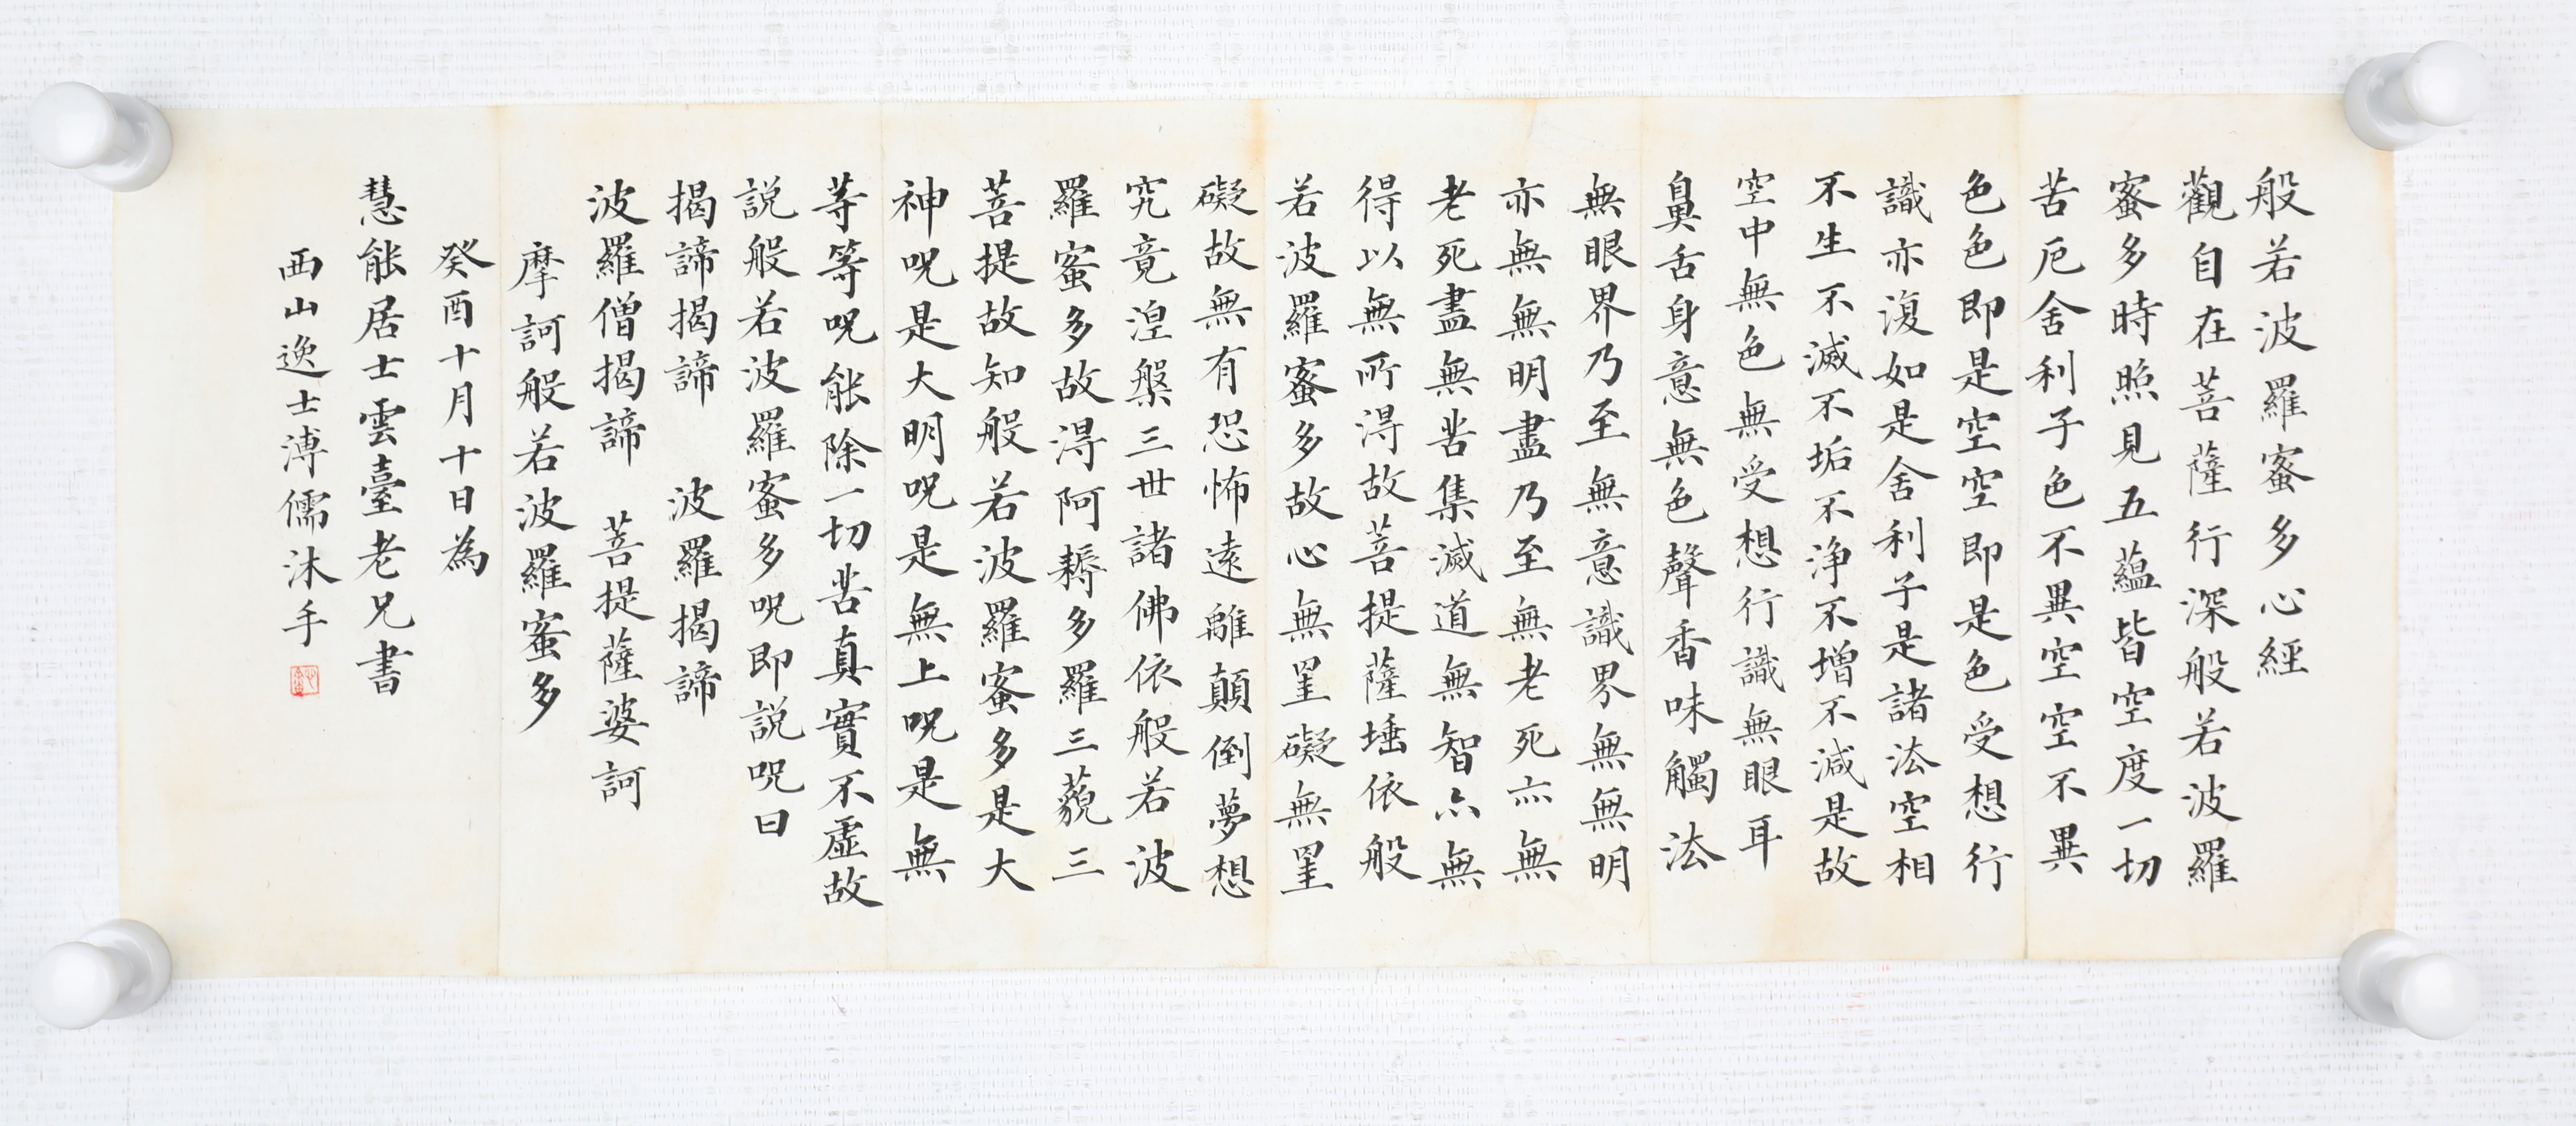 般若波羅蜜多心經
觀自在菩薩行深般若波羅
蜜多時照見五蘊皆空度一切
苦厄舍利子色不異空空不異
色色即是空空即是色受想行
識亦復如是舍利子是諸法空相
不生不滅不垢不淨不增不減是故
空中無色無受想行識無眼耳
鼻舌身意無色聲香味觸法
無眼界乃至無意識界無無明
亦無無明盡乃至無老死亦無
老死盡無苦集滅道無智亦無
得以無所得故菩提薩埵依般
若波羅蜜多故心無罣礙無罣
礙故無有恐怖遠離顛倒夢想
究竟涅槃三世諸佛依般若波
羅蜜多故得阿耨多羅三藐三
菩提故知般若波羅蜜多是大
神呪是大明呪是無上呪是無
等等呪能除一切苦真實不虛故
説般若波羅蜜多呪即説呪曰
揭諦揭諦 波羅揭諦
波羅僧揭諦 菩提薩婆訶
摩訶般若波羅蜜多
癸酉十月十日為
慧能居士雲臺老兄書
西山逸士溥儒沐手